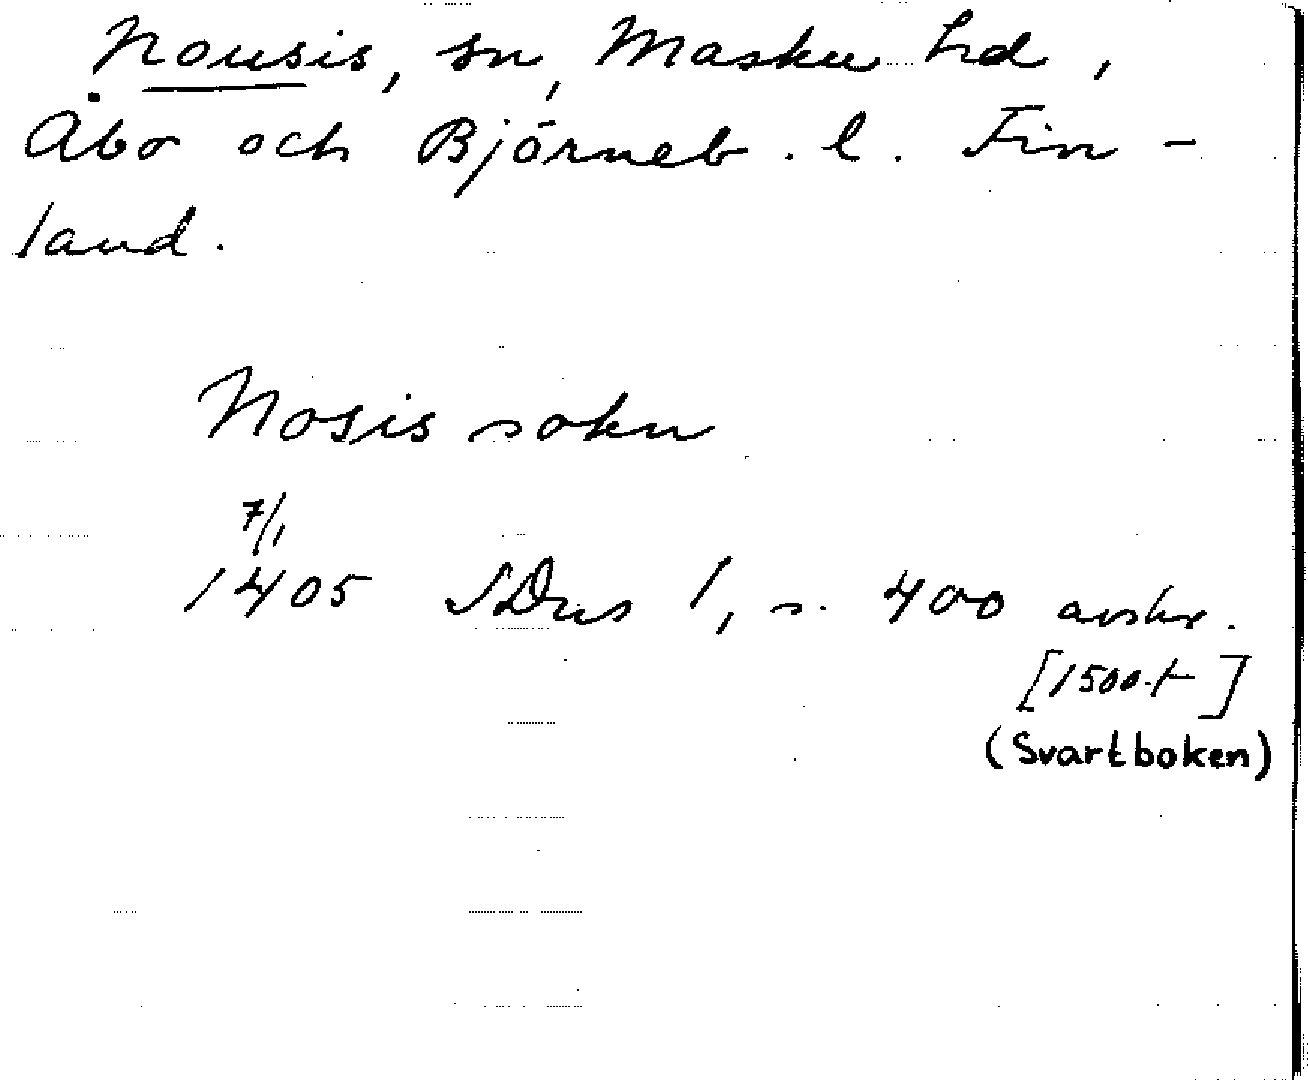 Nousis, sn, Masku hd,
Åbo och Björneb. l. Fin-
land.
Nosis sokn
7/1
1405 SDns 1, s. 400 avskr.
[1500-t]
(Svartboken)